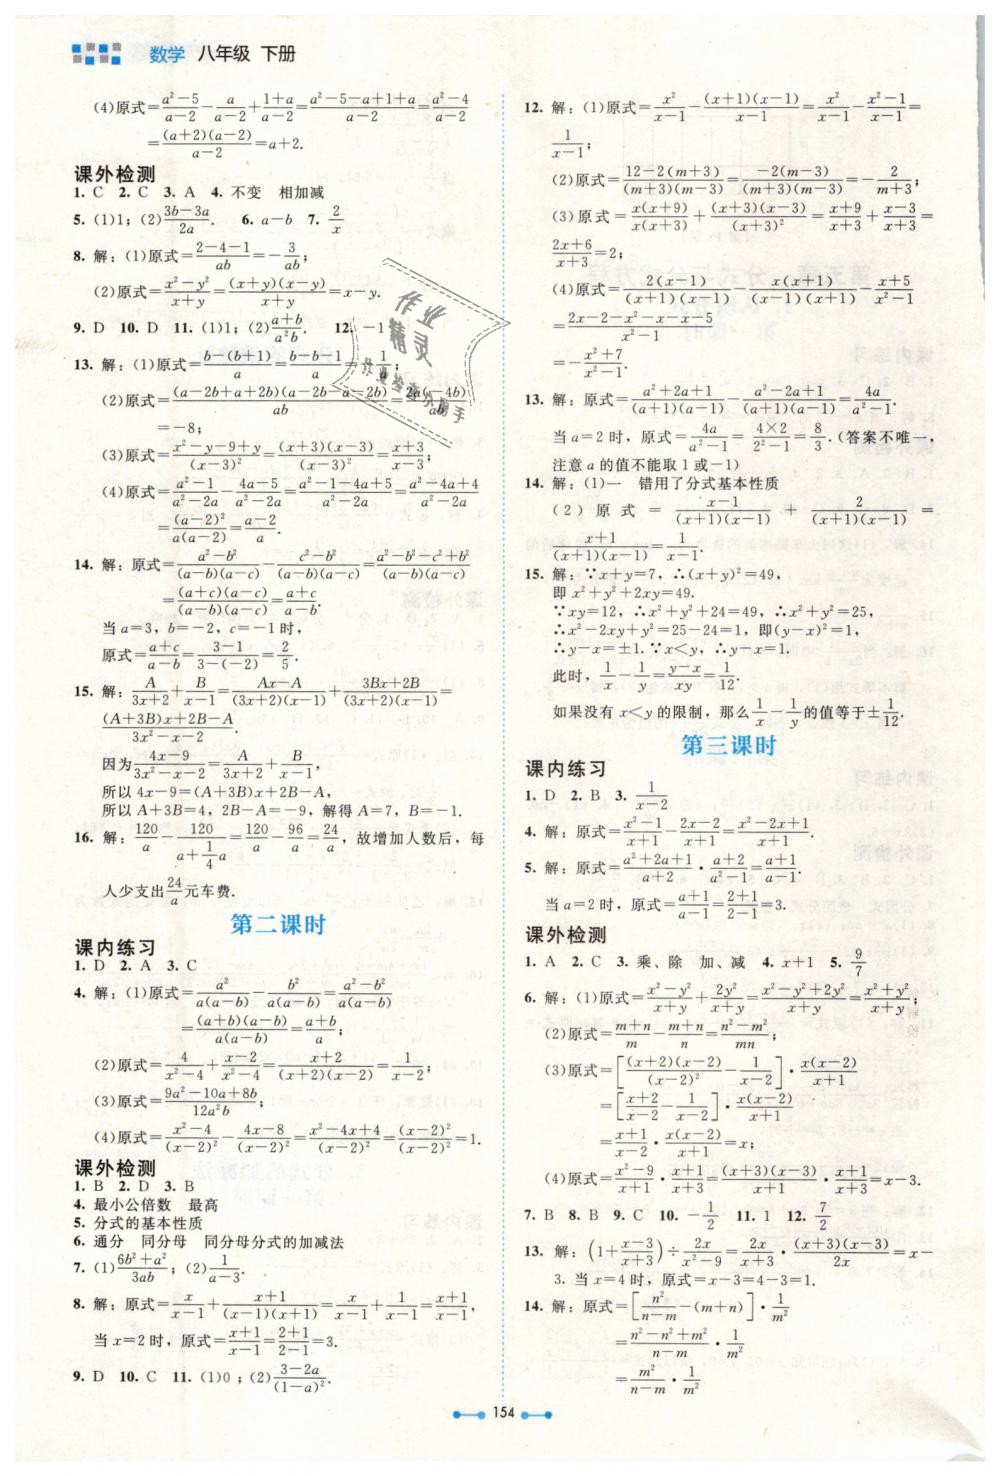 数学 八年级 下册
(4)原式=\frac{a²-5}{a-2}-\frac{a}{a-2}+\frac{1+a}{a-2}=\frac{a²-5-a+1+a}{a-2}=\frac{a²-4}{a-2}
=\frac{(a+2)(a-2)}{a-2}=a+2.
课外检测
1. C 2. C 3. A 4. 不变 相加减
5. (1)1; (2)\frac{3b-3a}{2a}. 6. a-b 7. \frac{2}{x}
8. 解: (1)原式=\frac{2-4-1}{ab}=-\frac{3}{ab};
(2)原式=\frac{x²-y²}{x+y}=\frac{(x+y)(x-y)}{x+y}=x-y.
9. D 10. D 11. (1)1; (2)\frac{a+b}{a}. 12. -1
13. 解: (1)原式=\frac{b-(b+1)}{a}=\frac{b-b-1}{a}=-\frac{1}{a};
(2)原式=\frac{(a-2b+a+2b)(a-2b-a-2b)}{ab}=\frac{2a(-4b)}{ab}
=-8;
(3)原式=\frac{x²-y-9+y}{(x-3)²}=\frac{(x+3)(x-3)}{(x-3)²}=\frac{x+3}{x-3};
(4)原式=\frac{a²-1}{a²-2a}-\frac{4a-5}{a²-2a}=\frac{a²-1-4a+5}{a²-2a}=\frac{a²-4a+4}{a²-2a}
=\frac{(a-2)²}{a(a-2)}=\frac{a-2}{a}.
14. 解: 原式=\frac{a²-b²}{(a-b)(a-c)}-\frac{c²-b²}{(a-b)(a-c)}=\frac{a²-b²-c²+b²}{(a-b)(a-c)}
=\frac{(a+c)(a-c)}{(a-b)(a-c)}=\frac{a+c}{a-b}.
当a=3, b=-2, c=-1时,
原式=\frac{a+c}{a-b}=\frac{3-1}{3-(-2)}=\frac{2}{5}.
15. 解: \frac{A}{3x+2}+\frac{B}{x-1}=\frac{Ax-A}{(3x+2)(x-1)}+\frac{3Bx+2B}{(3x+2)(x-1)}=
\frac{(A+3B)x+2B-A}{3x²-x-2}.
因为\frac{4x-9}{3x²-x-2}=\frac{A}{3x+2}+\frac{B}{x-1},
所以4x-9=(A+3B)x+2B-A,
所以A+3B=4, 2B-A=-9, 解得A=7, B=-1.
16. 解: \frac{120}{a}-\frac{120}{a+\frac{1}{4}a}=\frac{120}{a}-\frac{96}{a}=\frac{24}{a}, 故增加人数后, 每
人少支出\frac{24}{a}元车费.
第二课时
课内练习
1. D 2. A 3. C
4. 解: (1)原式=\frac{a²}{a(a-b)}-\frac{b²}{a(a-b)}=\frac{a²-b²}{a(a-b)}
=\frac{(a+b)(a-b)}{a(a-b)}=\frac{a+b}{a};
(2)原式=\frac{4}{x²-4}+\frac{x-2}{x²-4}=\frac{x+2}{(x+2)(x-2)}=\frac{1}{x-2};
(3)原式=\frac{9a²-10a+8b}{12a²b};
(4)原式=\frac{x²-4}{(x-2)²}-\frac{4x-8}{(x-2)²}=\frac{x²-4x+4}{(x-2)²}=\frac{(x-2)²}{(x-2)²}=1.
课外检测
1. B 2. D 3. B
4. 最小公倍数 最高
5. 分式的基本性质
6. 通分 同分母 同分母分式的加减法
7. (1)\frac{6b²+a²}{3ab}; (2)\frac{1}{a-3}.
8. 解: 原式=\frac{x}{x-1}+\frac{x+1}{(x-1)(x+1)}=\frac{x}{x-1}+\frac{1}{x-1}=\frac{x+1}{x-1},
当x=2时, 原式=\frac{x+1}{x-1}=\frac{2+1}{2-1}=3.
9. D 10. C 11. (1)0; (2)\frac{3-2a}{(1-a)²}.
12. 解: (1)原式=\frac{x²}{x-1}-\frac{(x+1)(x-1)}{x-1}=\frac{x²}{x-1}-\frac{x²-1}{x-1}=
\frac{1}{x-1};
(2)原式=\frac{12-2(m+3)}{(m+3)(m-3)}=\frac{-2(m-3)}{(m+3)(m-3)}=-\frac{2}{m+3};
(3)原式=\frac{x(x+9)}{x(x+3)}+\frac{(x+3)(x-3)}{(x+3)²}=\frac{x+9}{x+3}+\frac{x-3}{x+3}=
\frac{2x+6}{x+3}=2;
(4)原式=\frac{2(x-1)}{(x+1)(x-1)}-\frac{x(x+1)}{(x+1)(x-1)}-\frac{x+5}{x²-1}
=\frac{2x-2-x²-x-x-5}{x²-1}
=-\frac{x²+7}{x²-1}.
13. 解: 原式=\frac{a²+2a+1}{(a+1)(a-1)}-\frac{a²-2a+1}{(a+1)(a-1)}=\frac{4a}{a²-1}.
当a=2时, 原式=\frac{4a}{a²-1}=\frac{4×2}{2²-1}=\frac{8}{3}. (答案不唯一,
注意a的值不能取1或-1)
14. 解: (1)一 错用了分式基本性质
(2)原式=\frac{x-1}{(x+1)(x-1)}+\frac{2}{(x+1)(x-1)}=
\frac{x+1}{(x+1)(x-1)}=\frac{1}{x-1}.
15. 解: ∵x+y=7, ∴(x+y)²=49,
即x²+y²+2xy=49.
∵xy=12, ∴x²+y²+24=49, ∴x²+y²=25,
∴x²-2xy+y²=25-24=1, 即(y-x)²=1,
∴y-x=±1. ∵x<y, ∴y-x=1.
此时, \frac{1}{x}-\frac{1}{y}=\frac{y-x}{xy}=\frac{1}{12}.
如果没有x<y的限制, 那么\frac{1}{x}-\frac{1}{y}的值等于±\frac{1}{12}.
第三课时
课内练习
1. D 2. B 3. \frac{1}{x-2}
4. 解: 原式=\frac{x²-1}{x+1}-\frac{2x-2}{x+1}=\frac{x²-2x+1}{x+1}.
5. 解: 原式=\frac{a²+2a+1}{a+2}·\frac{a+2}{a²-1}=\frac{a+1}{a-1}.
当a=2时, 原式=\frac{a+1}{a-1}=\frac{2+1}{2-1}=3.
课外检测
1. A 2. C 3. 乘、除 加、减 4. x+1 5. \frac{9}{7}
6. 解: (1)原式=\frac{x²-y²}{x+y}+\frac{2y²}{x+y}=\frac{x²-y²+2y²}{x+y}=\frac{x²+y²}{x+y};
(2)原式=\frac{m+n}{m}·\frac{m+n}{n}=\frac{n²-m²}{mn};
(3)原式=[\frac{(x+2)(x-2)}{(x-2)²}-\frac{1}{x-2}]·\frac{x(x-2)}{x+1}
=[\frac{x+2}{x-2}-\frac{1}{x-2}]·\frac{x(x-2)}{x+1}
=\frac{x+1}{x-2}·\frac{x(x-2)}{x+1}=x;
(4)原式=\frac{x²-9}{x+1}·\frac{x+1}{x+3}=\frac{(x+3)(x-3)}{x+1}·\frac{x+1}{x+3}=x-3.
7. B 8. B 9. C 10. -\frac{1}{2} 11. 1 12. \frac{7}{2}
13. 解: (1+\frac{x-3}{x+3})÷\frac{2x}{x²-9}=\frac{2x}{x+3}·\frac{(x+3)(x-3)}{2x}=x-
3. 当x=4时, 原式=x-3=4-3=1.
14. 解: 原式=[\frac{n²}{n-m}-(m+n)]·\frac{1}{m²}
=\frac{n²-n²+m²}{n-m}·\frac{1}{m²}
=\frac{m²}{n-m}·\frac{1}{m²}
154
作业
精灵
作业检查小帮手